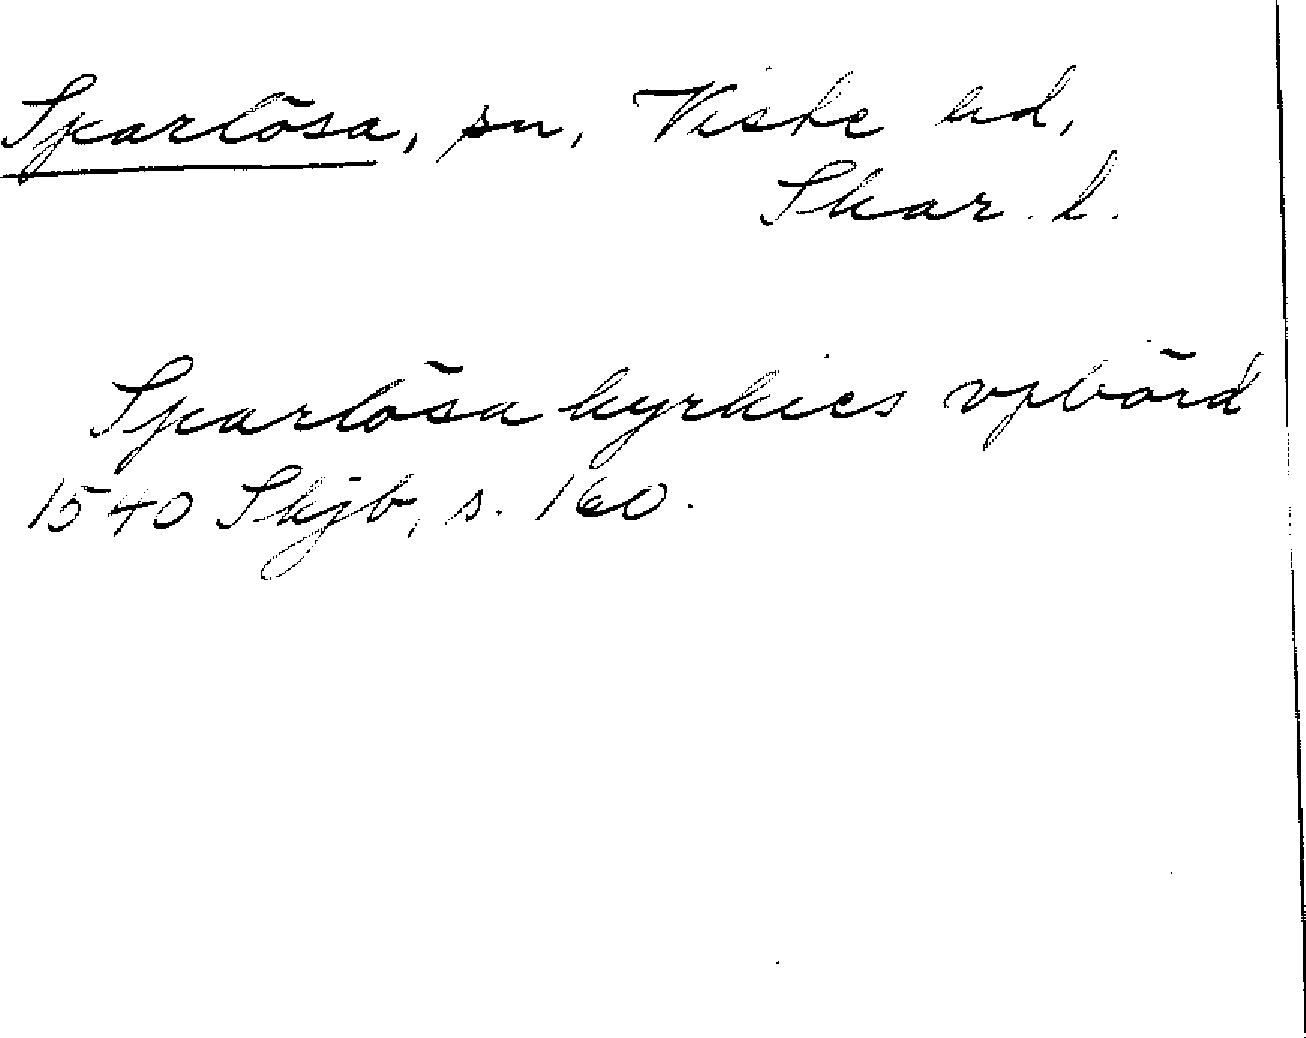 Sparlösa, sn, Viste hd,
Skar. l.
Sparlösa kyrkies vpbörd
1540 Skjb, s. 160.